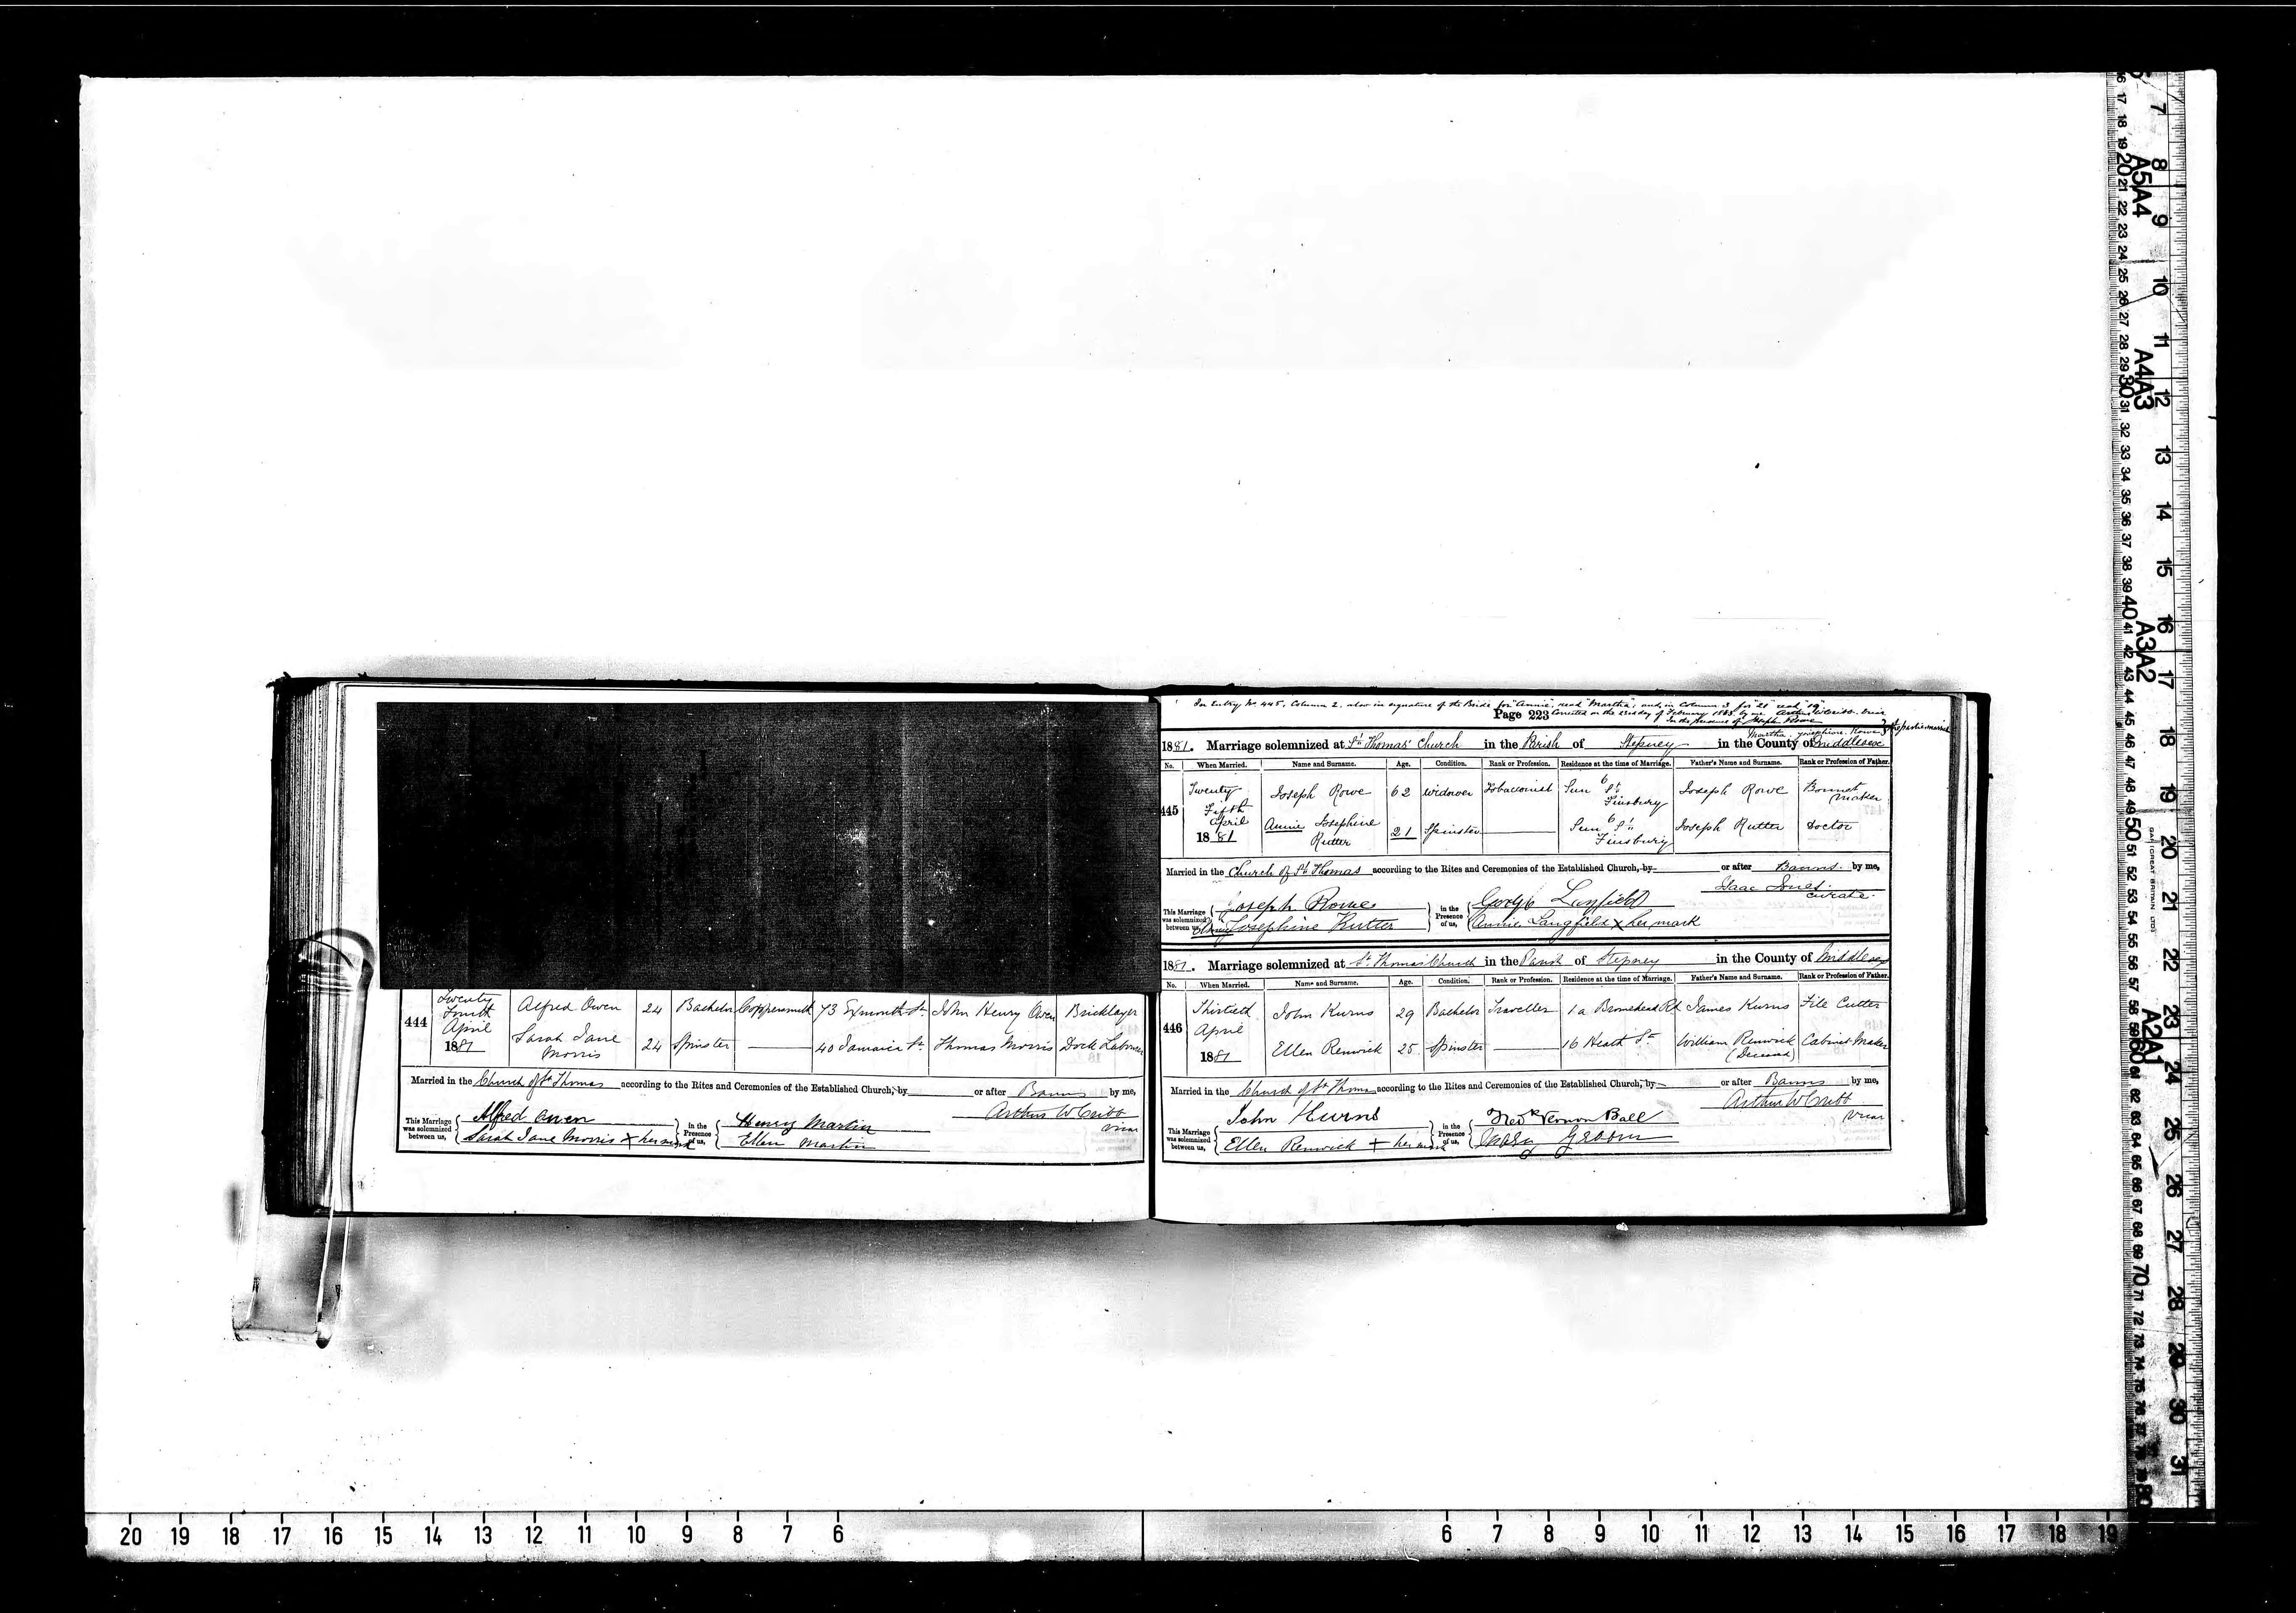 444
Twenty Fourth April 1881
Alfred Owen 24 Bachelor Coppersmith 73 Exmouth St. John Henry Owen Bricklayer
Sarah Jane Morris 24 Spinster 40 Jamaica St. Thomas Morris Dock Labourer
Married in the Church of St Thomas according to the Rites and Ceremonies of the Established Church, by or after Banns by me,
Arthur W Cribb
Vicar
This Marriage was solemnized between us, Alfred Owen
Sarah Jane Morris x her mark
in the Presence of us, Henry Martin
Ellen Martin
In Entry No 445, Column 2, also in signature of the Bride for "Annie" read "Martha", and in Column 3 for "21" read "19".
Page 223
Corrected on the 22nd day of February 1883 by me Arthur W Cribb. Vicar
In the presence of Joseph Rowe
Martha Josephine Rowe } the parties married
1881. Marriage solemnized at St Thomas' Church in the Parish of Stepney in the County of Middlesex
No. When Married. Name and Surname. Age. Condition. Rank or Profession. Residence at the time of Marriage. Father's Name and Surname. Rank or Profession of Father.
445
Twenty Fifth April 1881
Joseph Rowe 62 Widower Tobacconist 6 Sun St. Finsbury Joseph Rowe Bonnet Maker
Annie Josephine Rutter 21 Spinster 6 Sun St. Finsbury Joseph Rutter Doctor
Married in the Church of St Thomas according to the Rites and Ceremonies of the Established Church, by or after Banns by me,
Isaac Jones.
Curate.
This Marriage was solemnized between us, Joseph Rowe
Annie Josephine Rutter
in the Presence of us, George
Annie Langfield x her mark
1881. Marriage solemnized at St. Thomas Church in the Parish of Stepney in the County of Middlesex
No. When Married. Name and Surname. Age. Condition. Rank or Profession. Residence at the time of Marriage. Father's Name and Surname. Rank or Profession of Father.
446
Thirtieth April 1881
John Kurns 29 Bachelor Traveller 1a Rd James Kurns File Cutter
Ellen Renwick 25 Spinster 16 Heath St William Renwick (Deceased) Cabinet Maker
Married in the Church of St Thomas according to the Rites and Ceremonies of the Established Church, by or after Banns by me,
Arthur W Cribb
Vicar
This Marriage was solemnized between us, John Kurns
Ellen Renwick + her mark
in the Presence of us, Fredk Vernon Ball
Groom
6 7 8 9 10 11 12 13 14 15 16 17 18 19 20 21 22 23 24 25 26 27 28 29 30 31
A5A4
A4A3
A3A2
A2A1
20 19 18 17 16 15 14 13 12 11 10 9 8 7 6
6 7 8 9 10 11 12 13 14 15 16 17 18 19